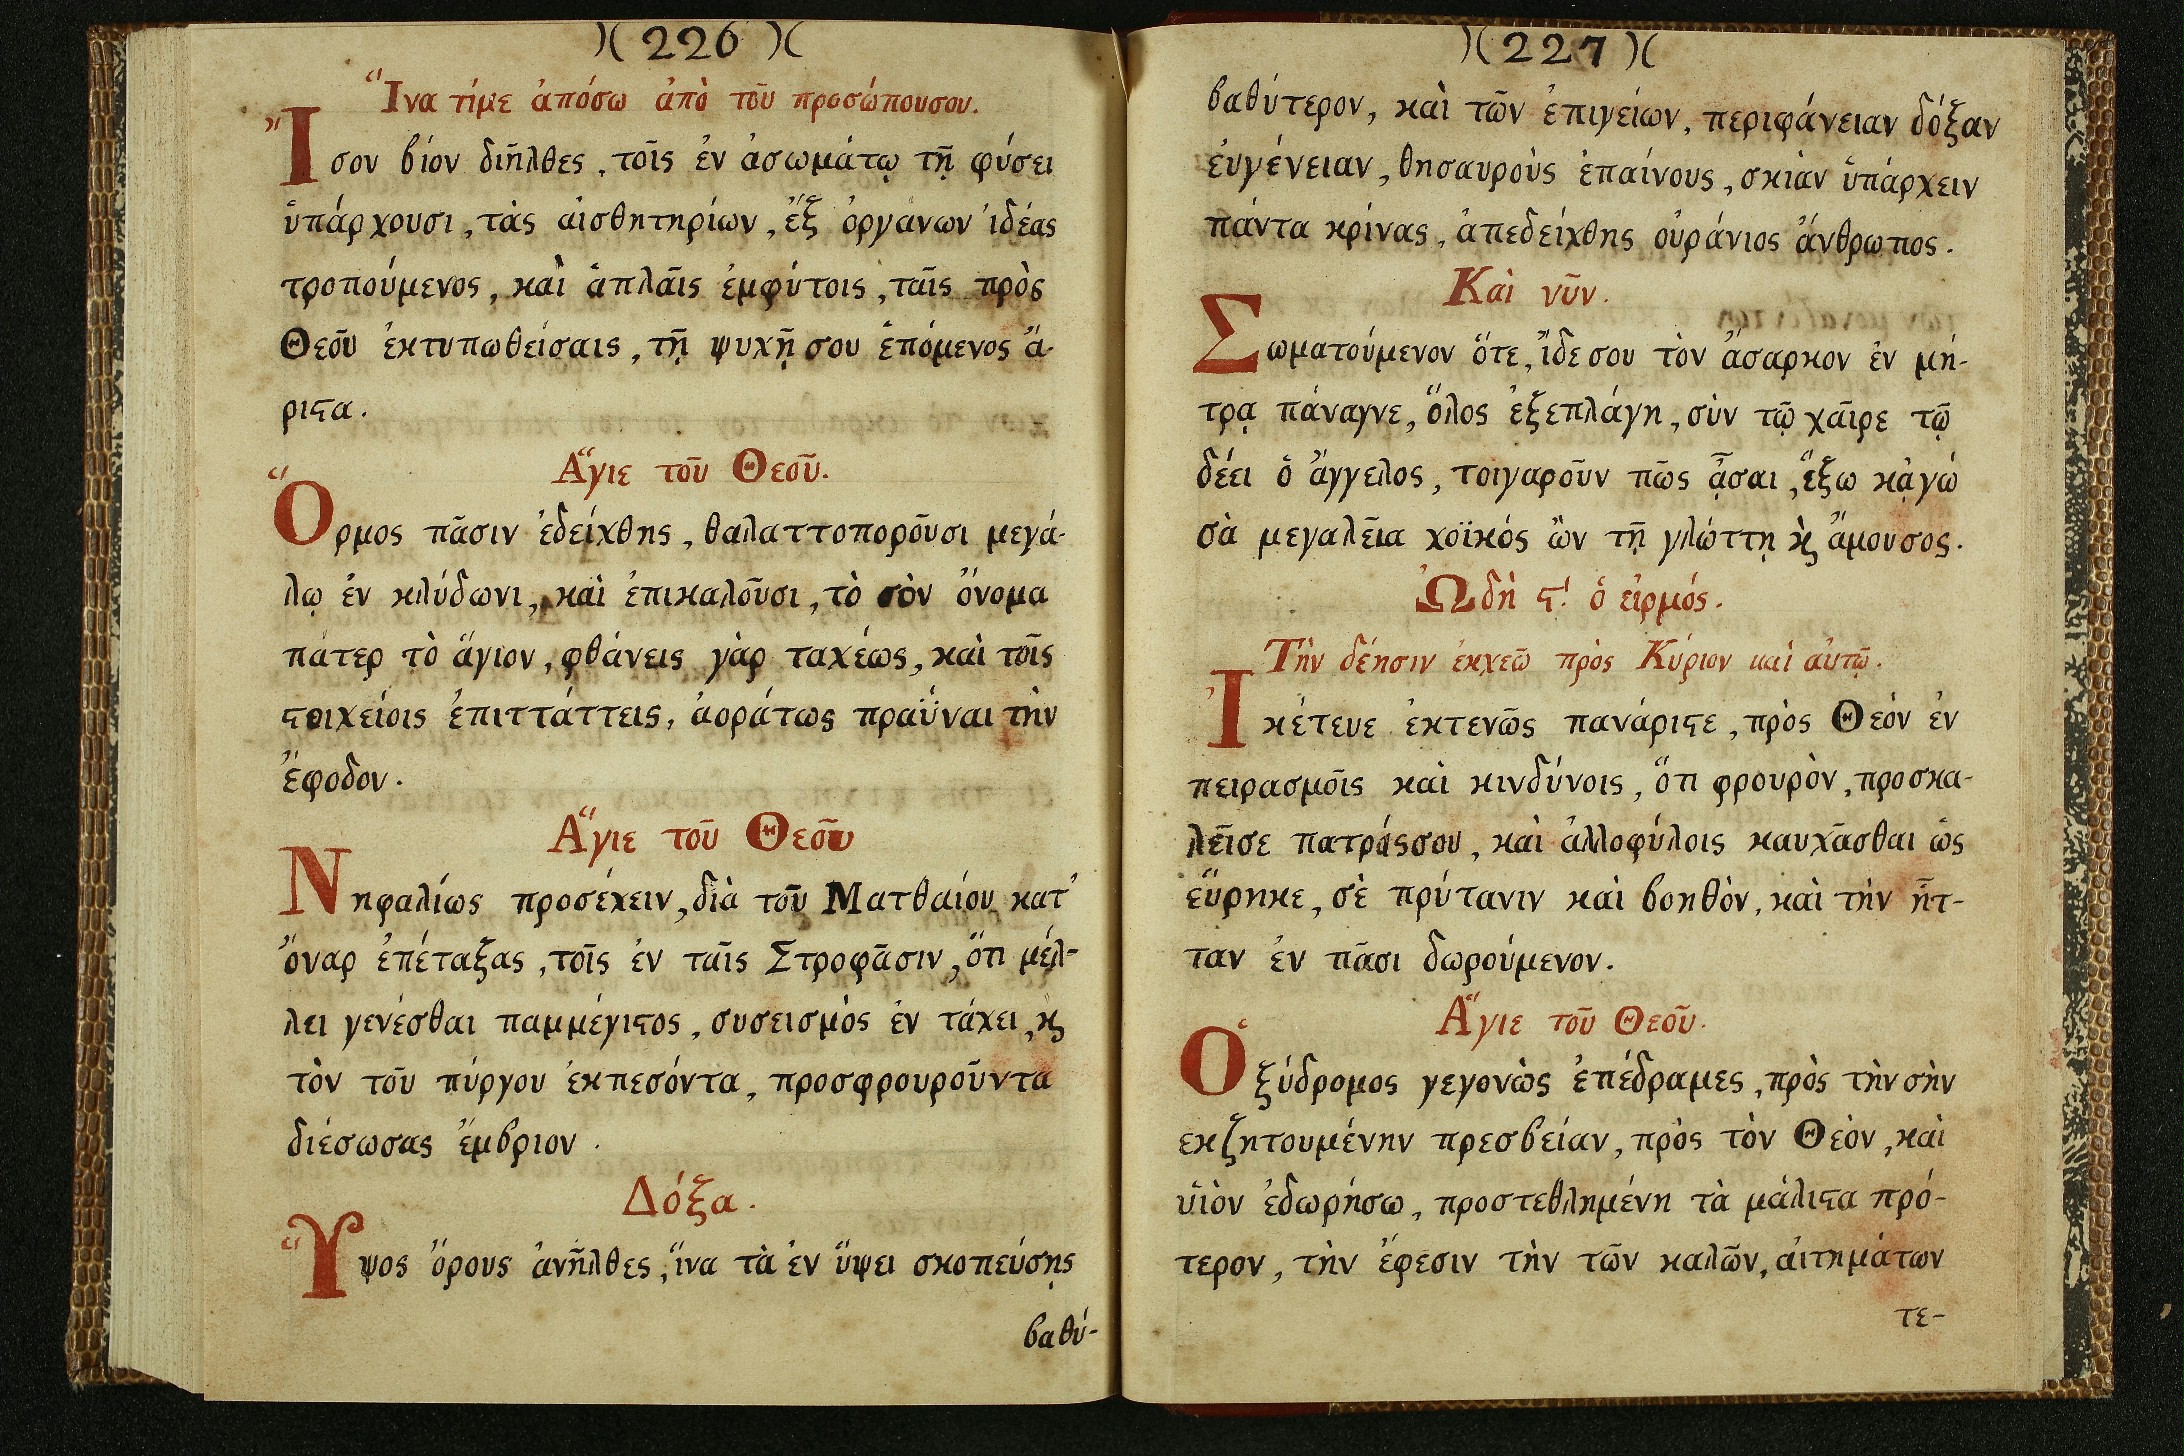 )( 226 )(
Ἵνα τίμε ἀπόσω ἀπὸ τοῦ προσώπουσου.
Ἴσον βίον διῆλθες, τοῖς ἐν ἀσωμάτῳ τῇ φύσει
ὑπάρχουσι, τὰς αἰσθητηρίων, ἐξ ὀργάνων ἰδέας
τροπούμενος, καὶ ἁπλαῖς ἐμφύτοις, ταῖς πρὸς
Θεοῦ ἐκτυπωθείσαις, τῇ ψυχῇ σου ἑπόμενος ἄ-
ριϛα.
Ἅγιε τοῦ Θεοῦ.
Ὅρμος πᾶσιν ἐδείχθης, θαλαττοποροῦσι μεγά-
λῳ ἐν κλύδωνι, καὶ ἐπικαλοῦσι, τὸ σὸν ὄνομα
πάτερ τὸ ἅγιον, φθάνεις γὰρ ταχέως, καὶ τοῖς
ϛοιχείοις ἐπιττάττεις, ἀοράτως πραΰναι τὴν
ἔφοδον.
Ἅγιε τοῦ Θεοῦ
Νηφαλίως προσέχειν, διὰ τοῦ Ματθαίου κατ'
ὄναρ ἐπέταξας, τοῖς ἐν ταῖς Στροφᾶσιν, ὅτι μέλ-
λει γενέσθαι παμμέγιϛος, συσεισμὸς ἐν τάχει, ϗ
τὸν τοῦ πύργου ἐκπεσόντα, προσφρουροῦντα
διέσωσας ἔμβριον.
Δόξα.
Ὕψος ὄρους ἀνῆλθες, ἵνα τὰ ἐν ὕψει σκοπεύσῃς
βαθύ-
)( 227 )(
βαθύτερον, καὶ τῶν ἐπιγείων, περιφάνειαν δόξαν
ἐυγένειαν, θησαυροὺς ἐπαίνους, σκιὰν ὑπάρχειν
πάντα κρίνας, ἀπεδείχθης οὐράνιος ἄνθρωπος.
Καὶ νῦν.
Σωματούμενον ὅτε, ἴδε σου τὸν ἄσαρκον ἐν μή-
τρᾳ πάναγνε, ὅλος ἐξεπλάγη, σὺν τῷ χαῖρε τῷ
δέει ὁ ἄγγελος, τοιγαροῦν πῶς ᾆσαι, ἕξω κᾀγώ
σὰ μεγαλεῖα χοϊκός ὢν τῇ γλώττῃ ϗ ἄμουσος.
Ὠδὴ ϛ'. ὁ εἱρμός.
Τὴν δέησιν ἐκχεῶ πρὸς Κύριον καὶ αὐτῷ.
Ἱκέτευε ἐκτενῶς πανάριϛε, πρὸς Θεόν ἐν
πειρασμοῖς καὶ κινδύνοις, ὅτι φρουρὸν, προσκα-
λεῖσε πατράςσου, καὶ ἀλλοφύλοις καυχᾶσθαι ὡς
εὕρηκε, σὲ πρύτανιν καὶ βοηθὸν, καὶ τὴν ἧτ-
ταν ἐν πᾶσι δωρούμενον.
Ἅγιε τοῦ Θεοῦ.
Ὀξύδρομος γεγονὼς ἐπέδραμες, πρὸς τὴν σὴν
εκζητουμένην πρεσβείαν, πρὸς τὸν Θεὸν, καὶ
ὑιὸν ἐδωρήσω, προστεθλημένη τὰ μάλιϛα πρό-
τερον, τὴν ἔφεσιν τὴν τῶν καλῶν, αἰτημάτων
τε-